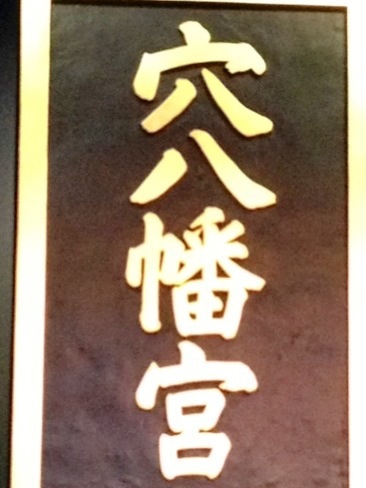 穴八幡宮